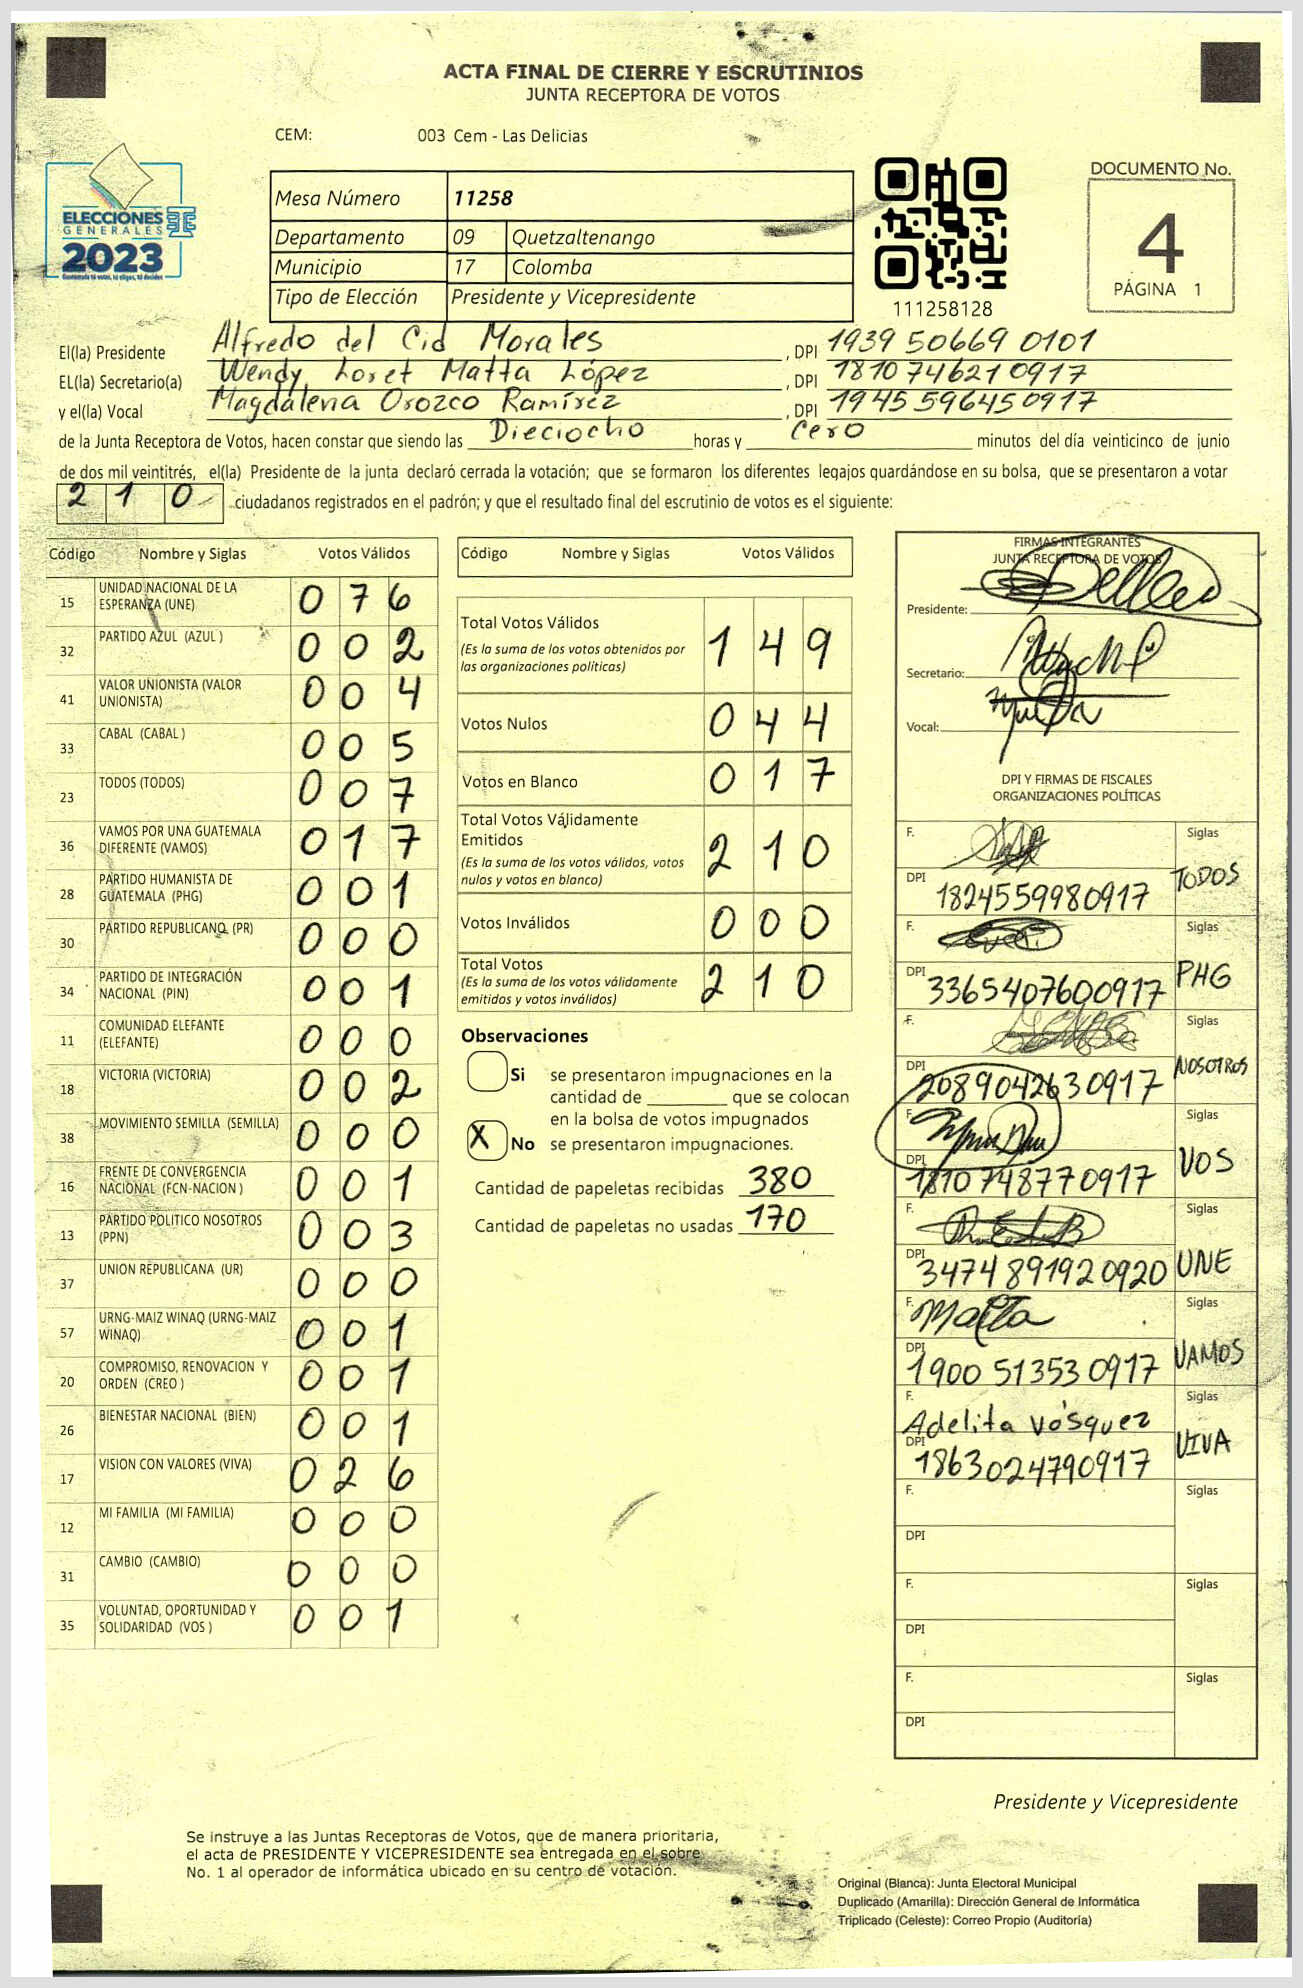 ACTA FINAL DE CIERRE Y ESCRUTINIOS
JUNTA RECEPTORA DE VOTOS
CEM: 003 Cem - Las Delicias
ELECCIONES
GENERALES
2023
Mesa Número 11258
Departamento 09 Quetzaltenango
Municipio 17 Colomba
Tipo de Elección Presidente y Vicepresidente
111258128
DOCUMENTO No.
4
PÁGINA 1
El(la) Presidente Alfredo del Cid Morales , DPI 1939 50669 0101
EL(la) Secretario(a) Wendy Loret Matta López , DPI 1810 74621 0917
y el(la) Vocal Magdalena Orozco Ramírez , DPI 1945 59645 0917
de la Junta Receptora de Votos, hacen constar que siendo las Dieciocho horas y cero minutos del día veinticinco de junio
de dos mil veintitrés, el(la) Presidente de la junta declaró cerrada la votación; que se formaron los diferentes legajos guardándose en su bolsa, que se presentaron a votar
2 1 0 ciudadanos registrados en el padrón; y que el resultado final del escrutinio de votos es el siguiente:
Código Nombre y Siglas Votos Válidos
15 UNIDAD NACIONAL DE LA ESPERANZA (UNE) 0 7 6
32 PARTIDO AZUL (AZUL ) 0 0 2
41 VALOR UNIONISTA (VALOR UNIONISTA) 0 0 4
33 CABAL (CABAL ) 0 0 5
23 TODOS (TODOS) 0 0 7
36 VAMOS POR UNA GUATEMALA DIFERENTE (VAMOS) 0 1 7
28 PARTIDO HUMANISTA DE GUATEMALA (PHG) 0 0 1
30 PARTIDO REPUBLICANO (PR) 0 0 0
34 PARTIDO DE INTEGRACIÓN NACIONAL (PIN) 0 0 1
11 COMUNIDAD ELEFANTE (ELEFANTE) 0 0 0
18 VICTORIA (VICTORIA) 0 0 2
38 MOVIMIENTO SEMILLA (SEMILLA) 0 0 0
16 FRENTE DE CONVERGENCIA NACIONAL (FCN-NACION ) 0 0 1
13 PARTIDO POLITICO NOSOTROS (PPN) 0 0 3
37 UNION REPUBLICANA (UR) 0 0 0
57 URNG-MAIZ WINAQ (URNG-MAIZ WINAQ) 0 0 1
20 COMPROMISO, RENOVACION Y ORDEN (CREO ) 0 0 1
26 BIENESTAR NACIONAL (BIEN) 0 0 1
17 VISION CON VALORES (VIVA) 0 2 6
12 MI FAMILIA (MI FAMILIA) 0 0 0
31 CAMBIO (CAMBIO) 0 0 0
35 VOLUNTAD, OPORTUNIDAD Y SOLIDARIDAD (VOS ) 0 0 1
Código Nombre y Siglas Votos Válidos
Total Votos Válidos 1 4 9
(Es la suma de los votos obtenidos por
las organizaciones políticas)
Votos Nulos 0 4 4
Votos en Blanco 0 1 7
Total Votos Válidamente
Emitidos 2 1 0
(Es la suma de los votos válidos, votos
nulos y votos en blanco)
Votos Inválidos 0 0 0
Total Votos 2 1 0
(Es la suma de los votos válidamente
emitidos y votos inválidos)
Observaciones
Si se presentaron impugnaciones en la
cantidad de ________ que se colocan
en la bolsa de votos impugnados
X No se presentaron impugnaciones.
Cantidad de papeletas recibidas 380
Cantidad de papeletas no usadas 170
FIRMAS INTEGRANTES
JUNTA RECEPTORA DE VOTOS
Presidente:
Secretario:
Vocal:
DPI Y FIRMAS DE FISCALES
ORGANIZACIONES POLÍTICAS
F. Siglas
DPI 1824559980917 TODOS
F. Siglas
DPI 3365407600917 PHG
F. Siglas
DPI 2089042630917 NOSOTROS
F. Siglas
DPI 1810748770917 VOS
F. Siglas
DPI 3474 891920920 UNE
F. Matta Siglas
DPI 1900 51353 0917 VAMOS
F. Adelita Vásquez Siglas
DPI 1863024790917 VIVA
F. Siglas
DPI
F. Siglas
DPI
F. Siglas
DPI
Presidente y Vicepresidente
Se instruye a las Juntas Receptoras de Votos, que de manera prioritaria,
el acta de PRESIDENTE Y VICEPRESIDENTE sea entregada en el sobre
No. 1 al operador de informática ubicado en su centro de votación.
Original (Blanca): Junta Electoral Municipal
Duplicado (Amarilla): Dirección General de Informática
Triplicado (Celeste): Correo Propio (Auditoría)